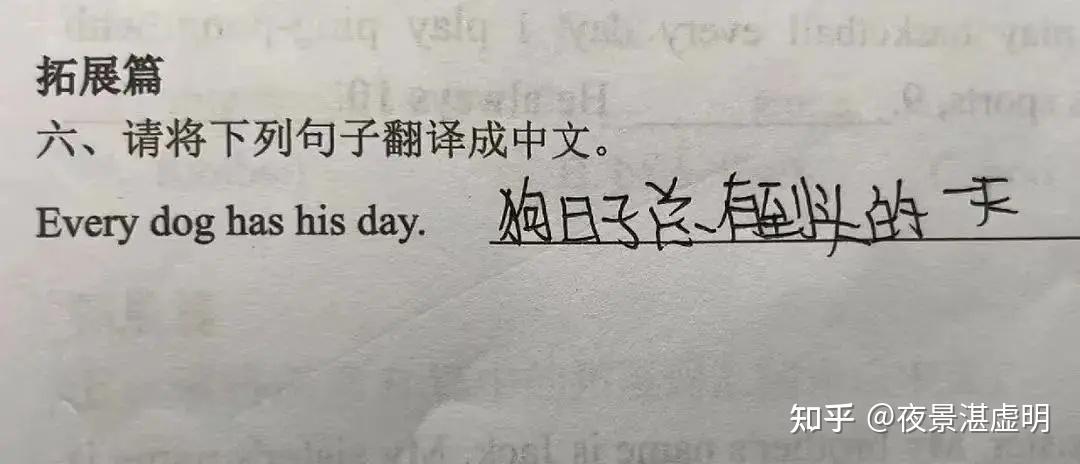 拓展篇
六、请将下列句子翻译成中文。
Every dog has his day. 狗日子总有到头的一天
知乎 @夜景湛虚明